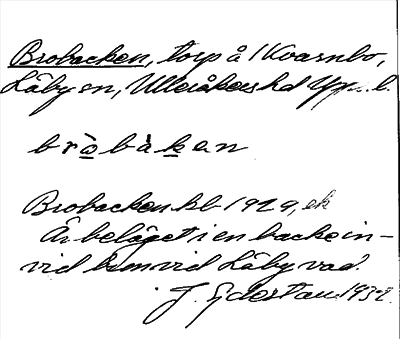 Brobacken, torp å 1 Kvarnbo,
Läby sn, Ulleråkers hd Uppl.
bròbàken
Brobacken kb 1929, ek
Är beläget i en backe in-
vid bron vid Läby vad.
J. 1932.